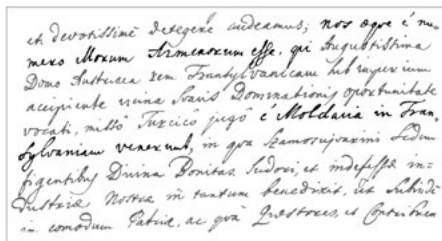 et devotissimè detegere audeamus; nos eqve è nu-
mero Morum Armenorum esse, qui Augustissima
Domo Austriaca rem Transylvanicam sub imperium
accipiente vicina Ioanis Dominationis oportunitate
vocati, misso Turcico jugo è Moldavia in Tran-
sylvaniam venerunt, in qva Szamosujvarini Sedem
figentibus Divina Bonitas Sudori, et indefessæ in-
dustriæ Nostræ in tantum benedixit, ut Subinde
in comodum Patriæ, ac qvà Qvæstores, et Contribuen